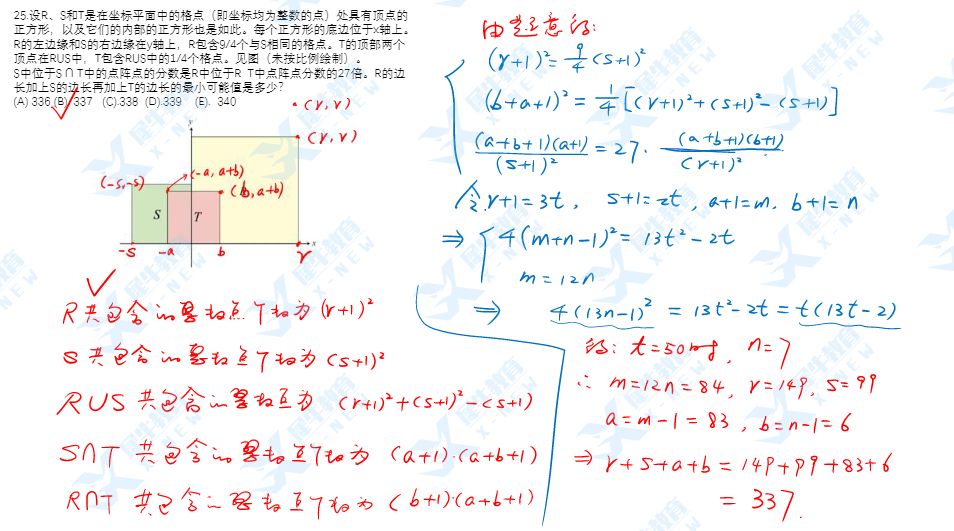 25.设R、S和T是在坐标平面中的格点（即坐标均为整数的点）处具有顶点的
正方形，以及它们的内部的正方形也是如此。每个正方形的底边位于x轴上。
R的左边缘和S的右边缘在y轴上，R包含9/4个与S相同的格点。T的顶部两个
顶点在RUS中，T包含RUS中的1/4个格点。见图（未按比例绘制）。
S中位于S∩T中的点阵点的分数是R中位于R T中点阵点分数的27倍。R的边
长加上S的边长再加上T的边长的最小可能值是多少?
(A) 336 (B) 337 (C).338 (D).339 (E). 340
(r, r)
y
(r, r)
(-s,-s)
(-a, a+b)
(b, a+b)
S
T
x
-s
-a
b
r
R共包含的整数点个数为 (r+1)²
S 共包含的整数点个数为 (s+1)²
RUS 共包含的整数点为 (r+1)²+(s+1)²-(s+1)
S∩T 共包含的整数点个数为 (a+1)·(a+b+1)
R∩T 共包含的整数点个数为 (b+1)·(a+b+1)
由题意得:
(r+1)²= 9/4 (s+1)²
(b+a+1)² = 1/4 [(r+1)²+(s+1)²-(s+1)]
(a+b+1)(a+1)/(s+1)² = 27· (a+b+1)(b+1)/(r+1)²
令 r+1=3t, s+1=2t, a+1=m, b+1=n
⇒ 4(m+n-1)²= 13t²-2t
m=12n
⇒ 4(13n-1)² = 13t²-2t = t(13t-2)
得: t=50时, n=7
∴ m=12n=84, r=149, s=99
a=m-1=83, b=n-1=6
⇒ r+s+a+b=149+99+83+6
= 337.
犀牛教育
X-NEW